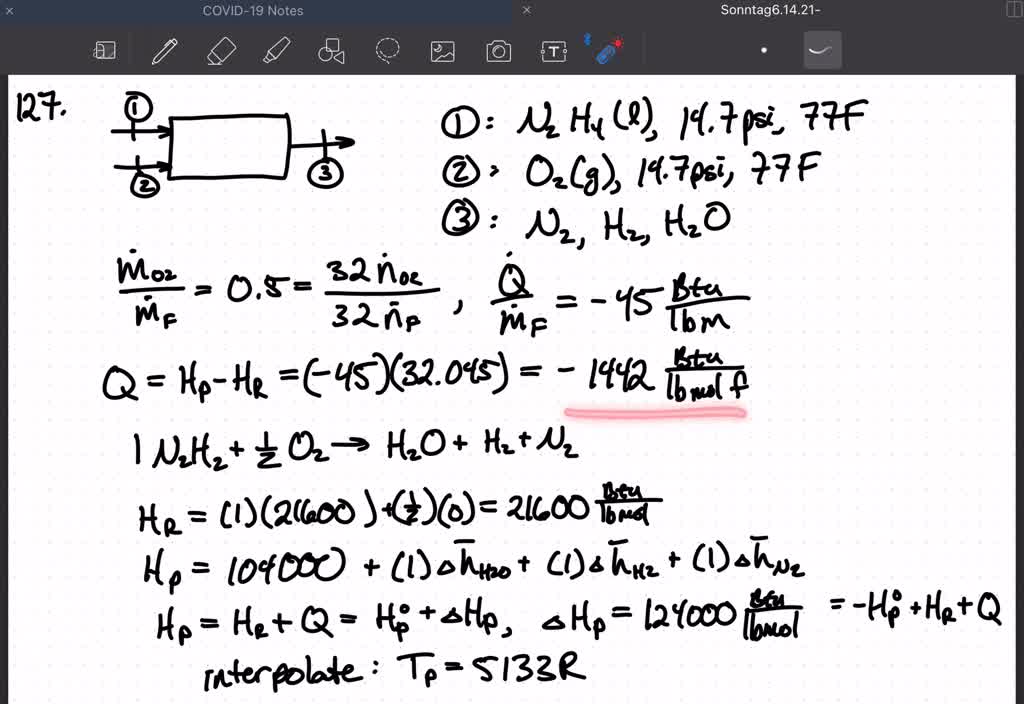 COVID-19 Notes
Sonntag6.14.21-
T
127.
① ② ③
①: N₂H₄(l), 14.7psi, 77F
②: O₂(g), 14.7psi, 77F
③: N₂, H₂, H₂O
ṁ_O2 / ṁ_F = 0.5 = 32 ṅ_O2 / 32 ṅ_F , Q̇ / ṁ_F = -45 Btu/lbm
Q = H_P - H_R = (-45)(32.045) = - 1442 Btu/lbmol f
1 N₂H₂ + ½ O₂ → H₂O + H₂ + N₂
H_R = (1)(21600) + (½)(0) = 21600 Btu/lbmol
H_P = 104000 + (1) Δh̄_H2O + (1) Δh̄_H2 + (1) Δh̄_N2
H_P = H_R + Q = H_P° + ΔH_P, ΔH_P = 124000 Btu/lbmol = -H_P° + H_R + Q
interpolate: T_P = 5133R